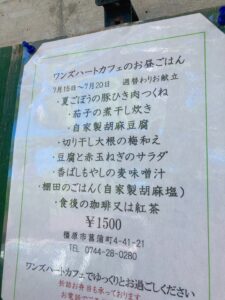 ワンズハートカフェのお昼ごはん
7月15日～7月20日 週替わりお献立
・夏ごぼうの豚ひき肉つくね
・茄子の煮干し炊き
・自家製胡麻豆腐
・切り干し大根の梅和え
・豆腐と赤玉ねぎのサラダ
・香ばしもやしの麦味噌汁
・棚田のごはん(自家製胡麻塩)
・食後の珈琲又は紅茶
¥1500
橿原市菖蒲町4-41-21
TEL 0744-28-0280
ワンズハートカフェでゆっくりとお過ごしください
折詰お弁当も承っております